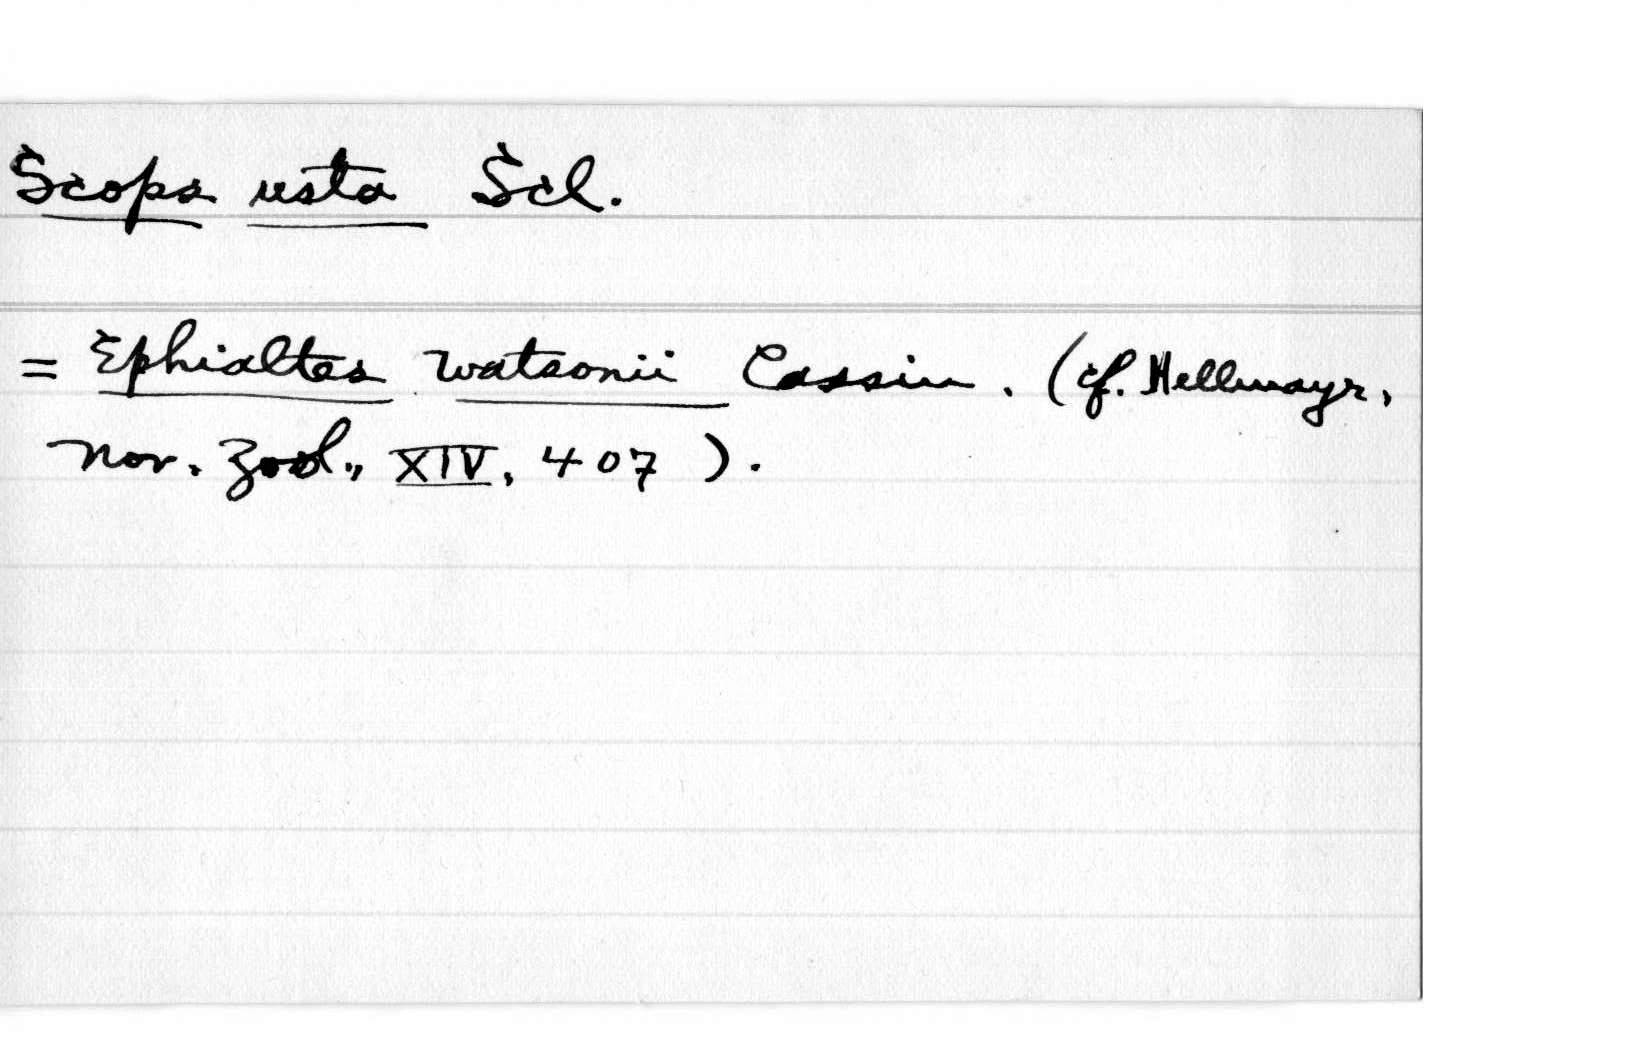 Scops usta Scl.
= Ephialtes watsonii Cassin. (cf. Hellmayr,
Nov. Zool., XIV, 407).